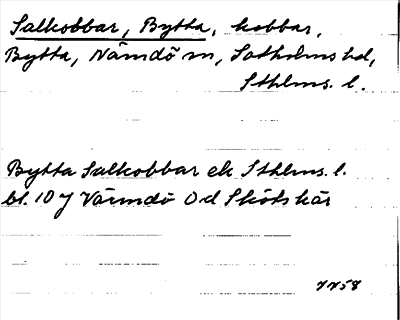 Salkobbar, Bytta, kobbar,
Bytta, Nämdö sn, Sotholms hd,
Sthlms. l.
Bytta Salkobbar ek Sthlms. l.
bl. 10 J Värmdö Od Skötskär
7758